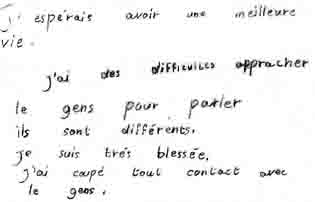 J'espérais avoir une meilleure
vie.
j'ai des difficultés approcher
le gens pour parler
ils sont différents.
je suis très blessée.
j'ai coupé tout contact avec
le gens.